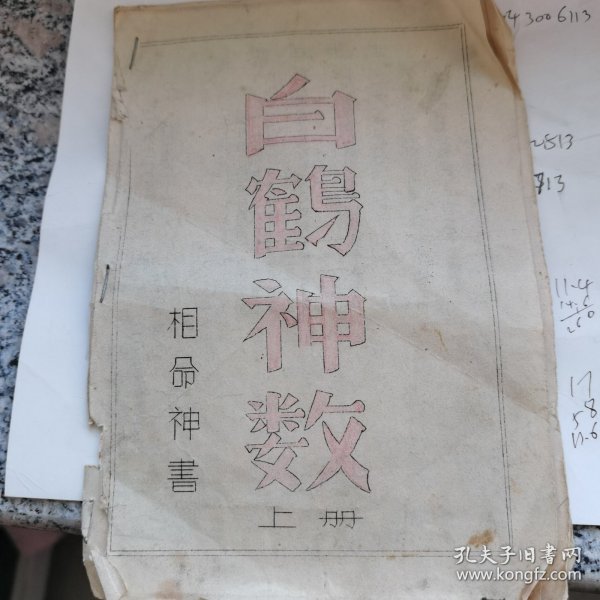 白鶴神数
相命神書
上册
4 3006113
2813
713
11-4
17
58
11-6
孔夫子旧书网
www.kongfz.com